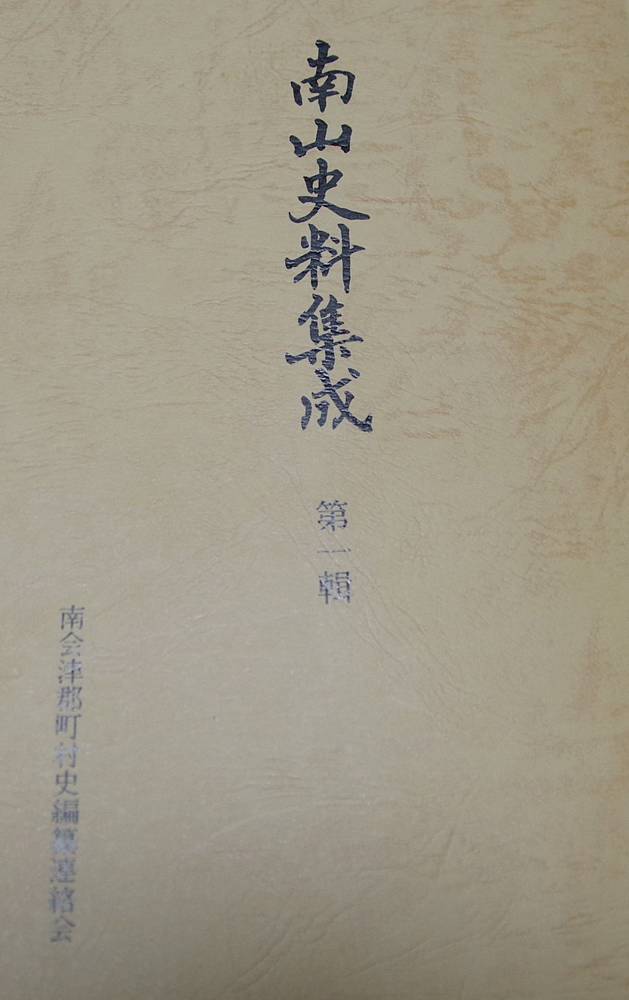 南山史料集成
第一輯
南会津郡町村史編纂連絡会